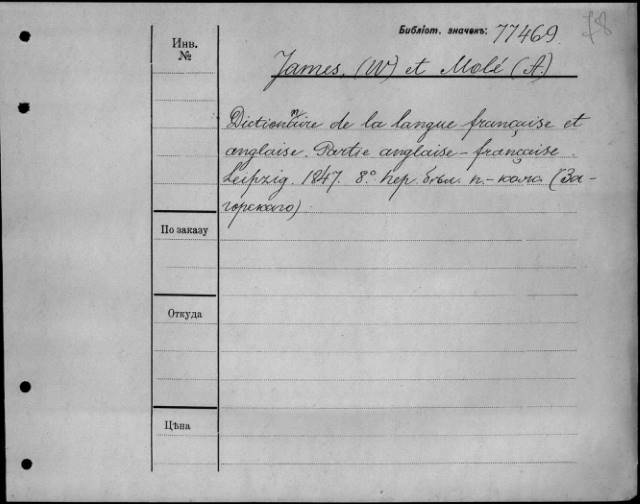 Библіот. значекъ: 77469.
78
Инв. №
James. (W) et Molé (A.)
Dictionnaire de la langue française et
anglaise. Partie anglaise-française.
Leipzig. 1847. 8.º пер. п.-кожа (За-
горскаго)
По заказу
Откуда
Цѣна